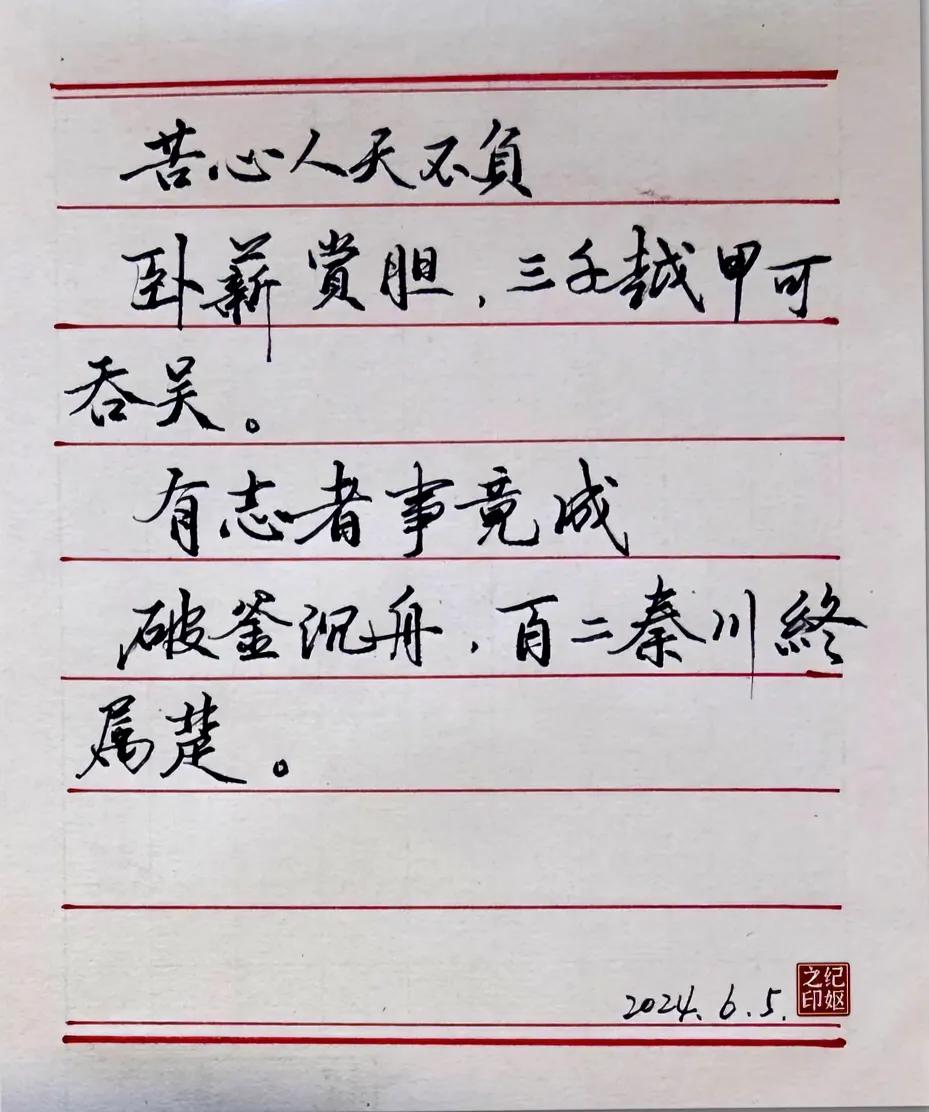 苦心人天不負
卧薪賞胆，三千越甲可
吞吴。
有志者事竟成
破釜沉舟，百二秦川終
属楚。
2024.6.5.
纪妪之印